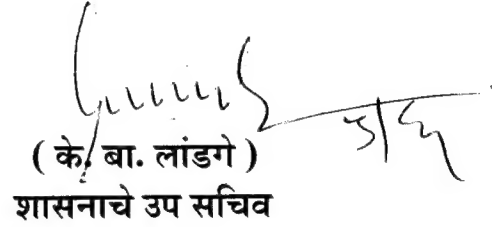 ( के. बा. लांडगे )
शासनाचे उप सचिव